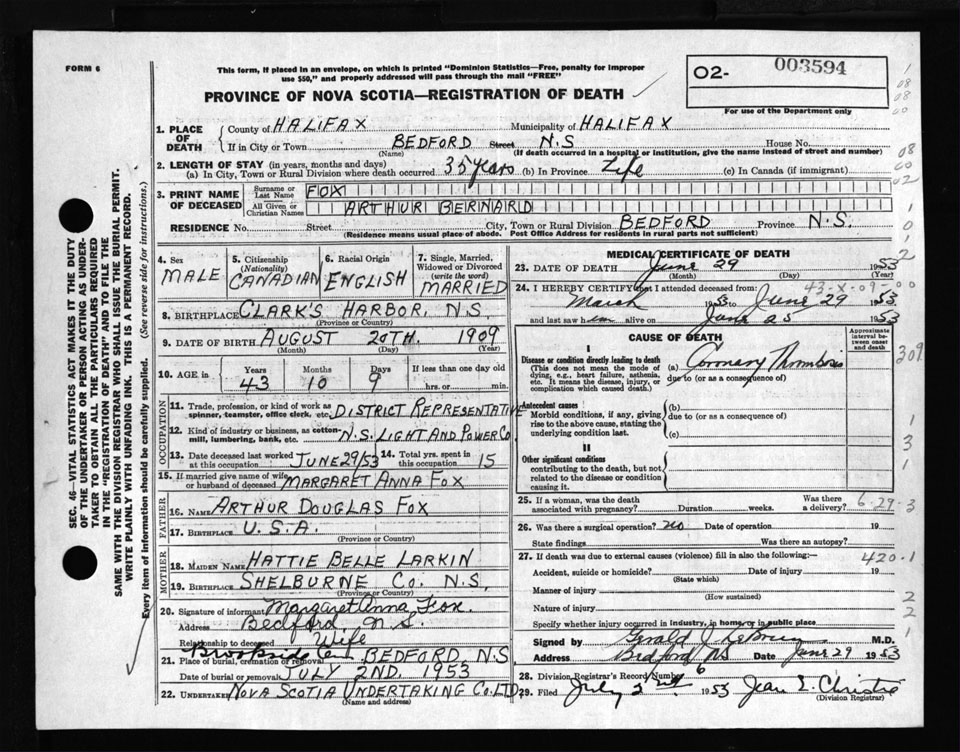 FORM 6
This form, if placed in an envelope, on which is printed "Dominion Statistics—Free, penalty for improper
use $50," and properly addressed will pass through the mail "FREE"
O2- 003594
For use of the Department only
PROVINCE OF NOVA SCOTIA—REGISTRATION OF DEATH
SEC. 46—VITAL STATISTICS ACT MAKES IT THE DUTY
OF THE UNDERTAKER OR PERSON ACTING AS UNDER-
TAKER TO OBTAIN ALL THE PARTICULARS REQUIRED
IN THE "REGISTRATION OF DEATH" AND TO FILE THE
SAME WITH THE DIVISION REGISTRAR WHO SHALL ISSUE THE BURIAL PERMIT.
WRITE PLAINLY WITH UNFADING INK. THIS IS A PERMANENT RECORD.
Every item of information should be carefully supplied. (See reverse side for instructions.)
1. PLACE OF DEATH
County of HALIFAX Municipality of HALIFAX
If in City or Town BEDFORD Street N.S House No.
(Name) (If death occurred in a hospital or institution, give the name instead of street and number)
2. LENGTH OF STAY (in years, months and days)
(a) In City, Town or Rural Division where death occurred 35 years (b) In Province Life (c) In Canada (if immigrant)
3. PRINT NAME OF DECEASED
Surname or Last Name FOX
All Given or Christian Names ARTHUR BERNARD
RESIDENCE No. Street City, Town or Rural Division BEDFORD Province N.S.
(Residence means usual place of abode. Post Office Address for residents in rural parts not sufficient)
4. Sex MALE
5. Citizenship (Nationality) CANADIAN
6. Racial Origin ENGLISH
7. Single, Married, Widowed or Divorced (write the word) MARRIED
8. BIRTHPLACE CLARK'S HARBOR, N.S.
(Province or Country)
9. DATE OF BIRTH AUGUST 20TH. 1909
(Month) (Day) (Year)
10. AGE in Years 43 Months 10 Days 9 If less than one day old
hrs. or min.
OCCUPATION
11. Trade, profession or kind of work as spinner, teamster, office clerk, etc. DISTRICT REPRESENTATIVE
12. Kind of industry or business, as cotton-mill, lumbering, bank, etc. N.S. LIGHT AND POWER CO.
13. Date deceased last worked at this occupation JUNE 29/53 14. Total yrs. spent in this occupation 15
15. If married give name of wife or husband of deceased MARGARET ANNA FOX
FATHER
16. NAME ARTHUR DOUGLAS FOX
17. BIRTHPLACE U.S.A.
(Province or Country)
MOTHER
18. MAIDEN NAME HATTIE BELLE LARKIN
19. BIRTHPLACE SHELBURNE CO. N.S,
(Province or Country)
20. Signature of informant Margaret Anna Fox.
Address Bedford N S.
Relationship to deceased Wife
21. Place of burial, cremation or removal Brookside Cem BEDFORD N.S
Date of burial or removal JULY 2ND. 1953
22. UNDERTAKER NOVA SCOTIA UNDERTAKING CO. LTD.
(Name and address)
MEDICAL CERTIFICATE OF DEATH
23. DATE OF DEATH June 29 1953
(Month) (Day) (Year)
43-X-09-00
24. I HEREBY CERTIFY that I attended deceased from:
March 1953 to June 29 1953
and last saw him alive on June 25 1953
CAUSE OF DEATH
Approximate interval between onset and death
I
Disease or condition directly leading to death
(This does not mean the mode of dying, e.g., heart failure, asthenia, etc. It means the disease, injury, or complication which caused death.)
(a) Coronary Thrombosis
due to (or as a consequence of)
Antecedent causes
Morbid conditions, if any, giving rise to the above cause, stating the underlying condition last.
(b)
due to (or as a consequence of)
(c)
II
Other significant conditions
contributing to the death, but not related to the disease or condition causing it.
25. If a woman, was the death associated with pregnancy? Duration weeks. Was there a delivery? 6-29-3
26. Was there a surgical operation? no Date of operation 19
State findings Was there an autopsy?
27. If death was due to external causes (violence) fill in also the following:— 420.1
Accident, suicide or homicide? Date of injury 19
(State which)
Manner of injury
(How sustained)
Nature of injury
Specify whether injury occurred in industry, in home, or in public place
Signed by Gerald J. M.D.
Address Bedford NS Date June 29 1953
28. Division Registrar's Record Number 6
29. Filed July 2nd. 1953 Jean E. Christie
(Division Registrar)